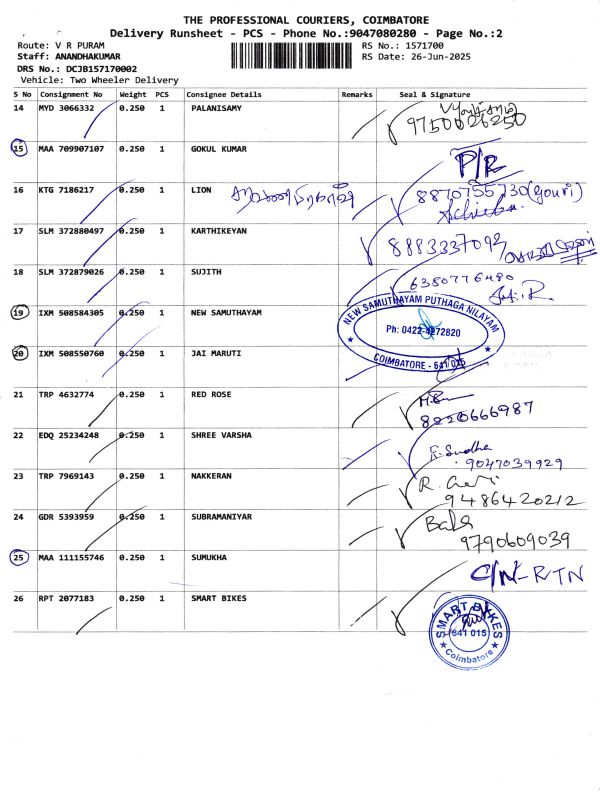 THE PROFESSIONAL COURIERS, COIMBATORE
Delivery Runsheet - PCS - Phone No.:9047080280 - Page No.:2
Route: V R PURAM RS No.: 1571700
Staff: ANANDHAKUMAR RS Date: 26-Jun-2025
DRS No.: DCJB157170002
Vehicle: Two Wheeler Delivery
S No Consignment No Weight PCS Consignee Details Remarks Seal & Signature
14 MYD 3066332 0.250 1 PALANISAMY
9750026250
15 MAA 709907107 0.250 1 GOKUL KUMAR
P/R
16 KTG 7186217 0.250 1 LION 8870755730 (gouri)
17 SLM 372880497 0.250 1 KARTHIKEYAN
8883337092
18 SLM 372879026 0.250 1 SUJITH
6380776480
19 IXM 508584305 0.250 1 NEW SAMUTHAYAM
NEW SAMUTHAYAM PUTHAGA NILAYAM
Ph: 0422-4272820
COIMBATORE - 641 015
20 IXM 508550760 0.250 1 JAI MARUTI
21 TRP 4632774 0.250 1 RED ROSE
8220666987
22 EDQ 25234248 0.250 1 SHREE VARSHA
Sudha
9047039929
23 TRP 7969143 0.250 1 NAKKERAN
9486420212
24 GDR 5393959 0.250 1 SUBRAMANIYAR
Bala
9790609039
25 MAA 111155746 0.250 1 SUMUKHA
C/N-RTN
26 RPT 2077183 0.250 1 SMART BIKES
SMART BIKES
641 015
Coimbatore